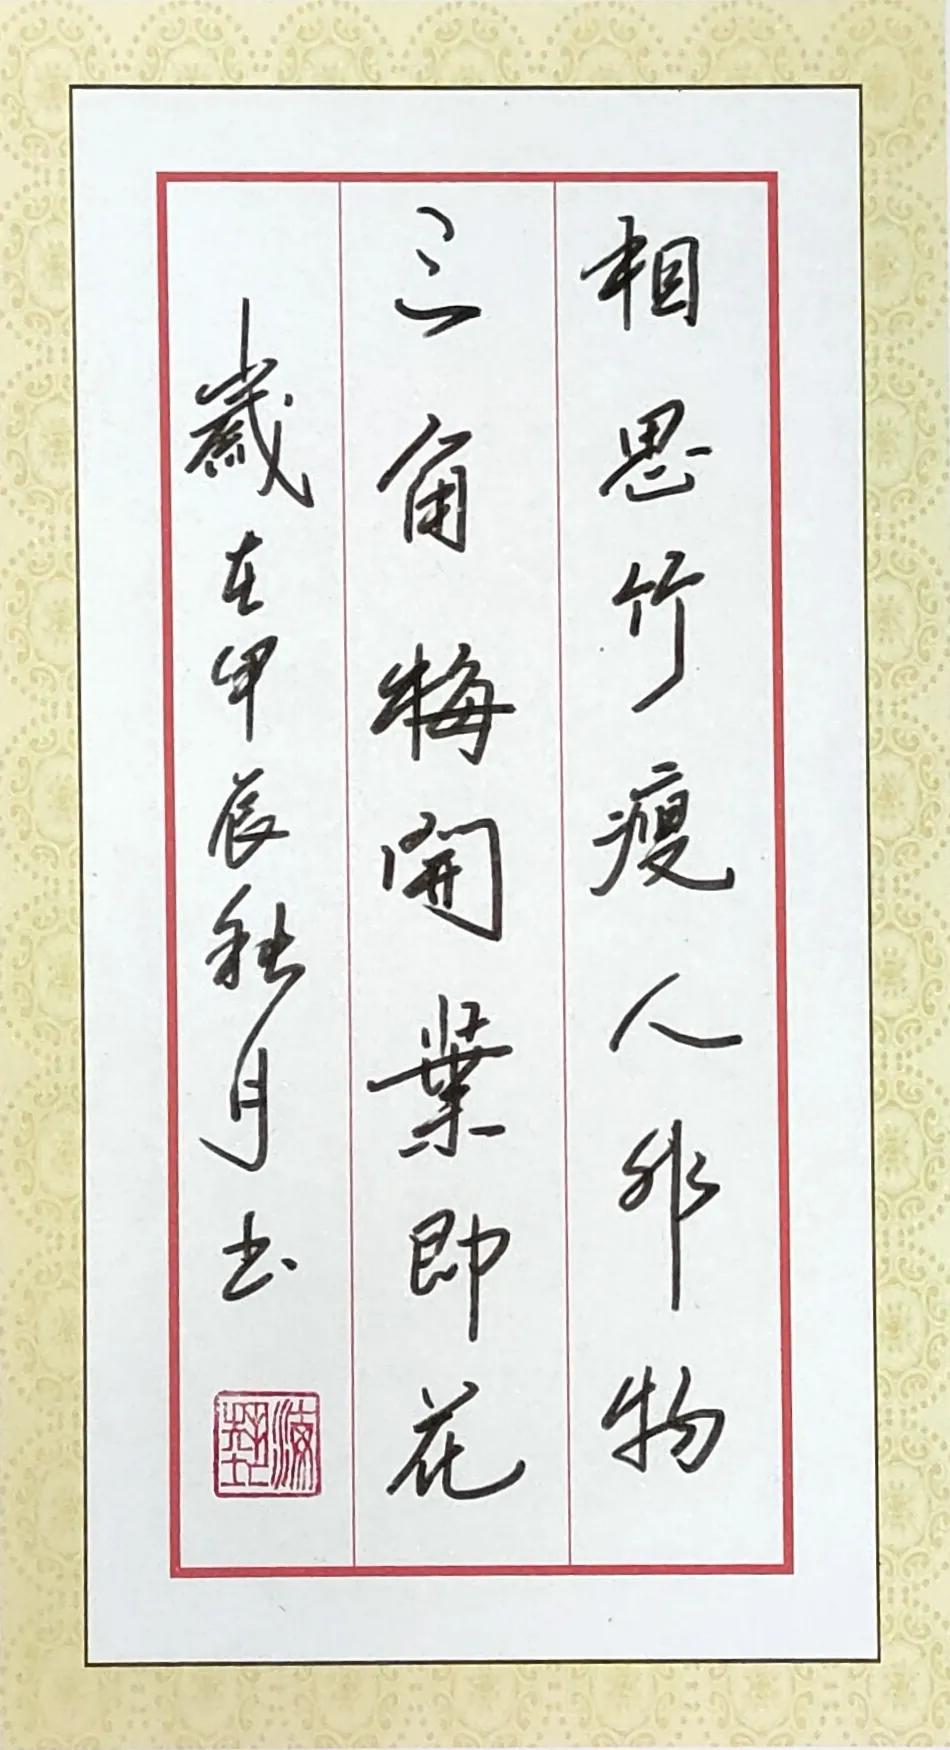 相思竹瘦人非物
三角梅開葉即花
歲在甲辰秋月书